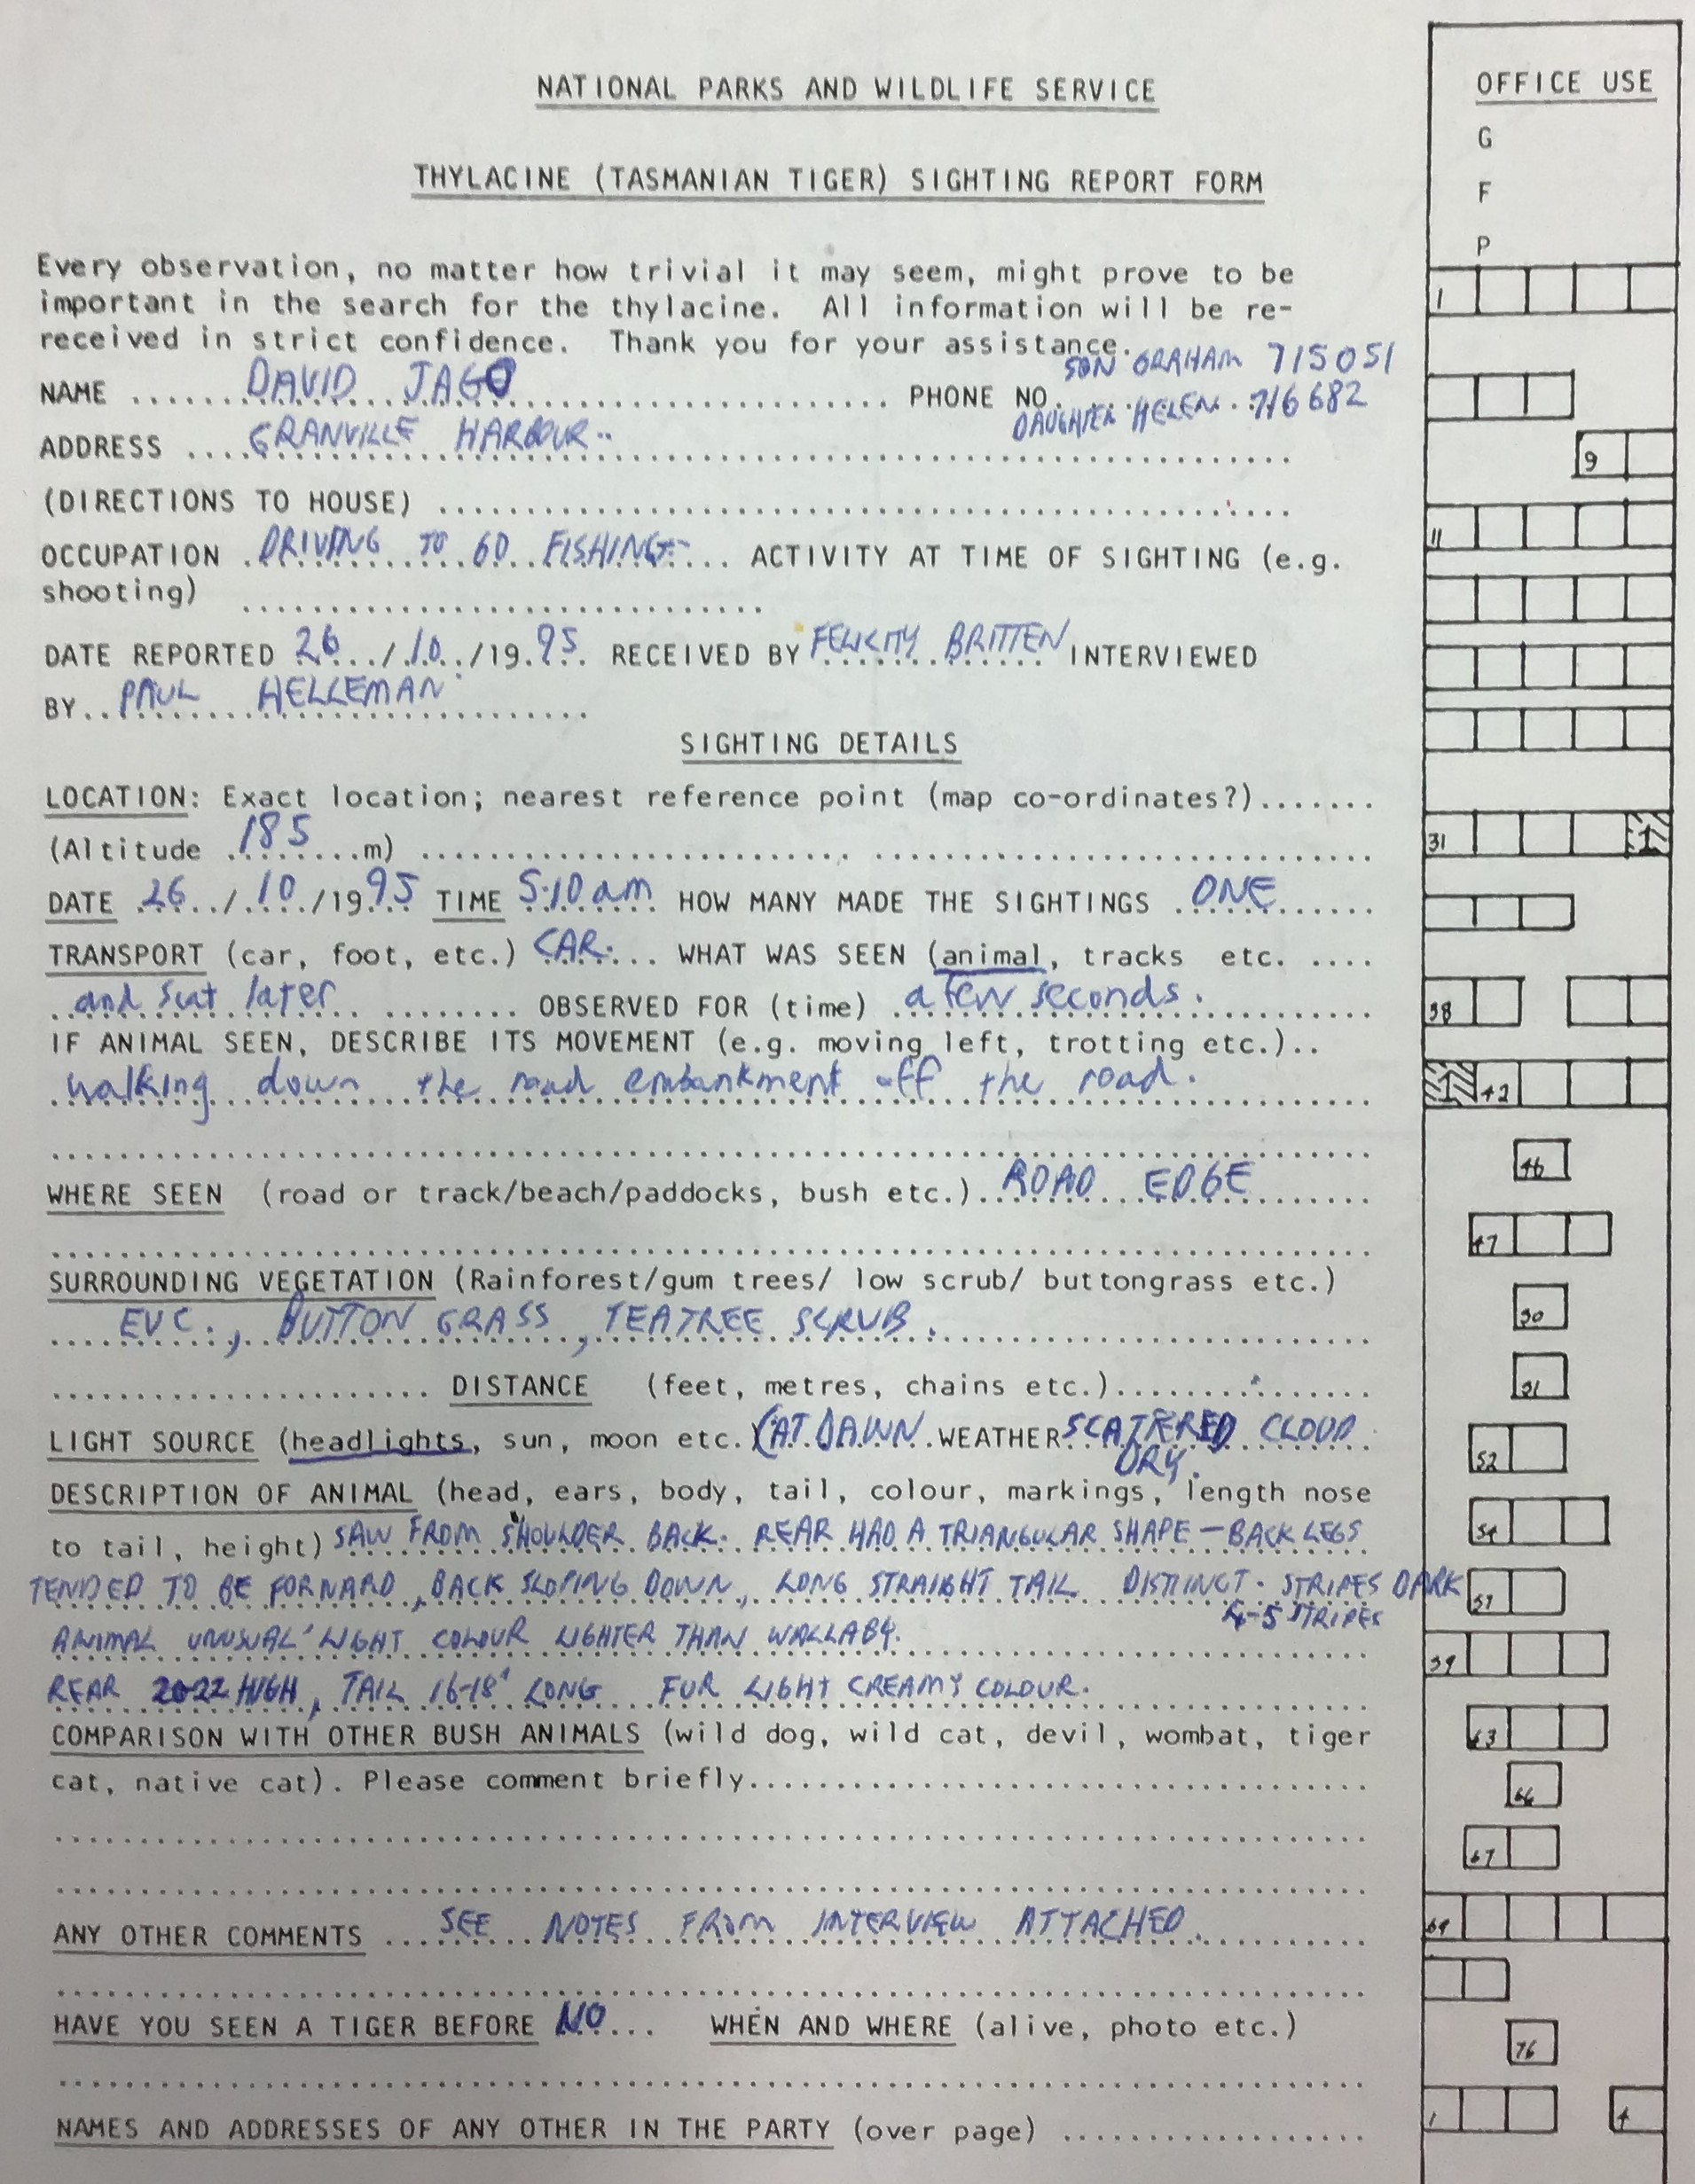 NATIONAL PARKS AND WILDLIFE SERVICE
OFFICE USE
G
THYLACINE (TASMANIAN TIGER) SIGHTING REPORT FORM
F
P
Every observation, no matter how trivial it may seem, might prove to be
important in the search for the thylacine. All information will be re-
1
received in strict confidence. Thank you for your assistance.
SON GRAHAM 715051
NAME .... DAVID JAGO .... PHONE NO. ....
DAUGHTER HELEN 716682
ADDRESS .... GRANVILLE HARBOUR ....
9
(DIRECTIONS TO HOUSE) ....
OCCUPATION . DRIVING TO GO FISHING .... ACTIVITY AT TIME OF SIGHTING (e.g.
11
shooting) ....
DATE REPORTED 26 / 10 / 19.95. RECEIVED BY FELICITY BRITTEN INTERVIEWED
BY.. PAUL HELLEMAN ....
SIGHTING DETAILS
LOCATION: Exact location; nearest reference point (map co-ordinates?).......
(Altitude 185 m) ....
31 1
DATE 26 / 10 / 1995 TIME 5.10am HOW MANY MADE THE SIGHTINGS . ONE ....
TRANSPORT (car, foot, etc.) CAR.... WHAT WAS SEEN (animal, tracks etc. ....
and scat later ........ OBSERVED FOR (time) .. a few seconds.
38
IF ANIMAL SEEN, DESCRIBE ITS MOVEMENT (e.g. moving left, trotting etc.)..
walking down the road embankment off the road.
1 42
46
WHERE SEEN (road or track/beach/paddocks, bush etc.).. ROAD EDGE ....
47
SURROUNDING VEGETATION (Rainforest/gum trees/ low scrub/ buttongrass etc.)
EUC., BUTTON GRASS, TEATREE SCRUB.
50
.... DISTANCE (feet, metres, chains etc.)....
51
LIGHT SOURCE (headlights, sun, moon etc.) (AT DAWN. WEATHER SCATTERED CLOUD
DRY.
52
DESCRIPTION OF ANIMAL (head, ears, body, tail, colour, markings, length nose
to tail, height) SAW FROM SHOULDER BACK. REAR HAD A TRIANGULAR SHAPE - BACK LEGS
54
TENDED TO BE FORWARD, BACK SLOPING DOWN, LONG STRAIGHT TAIL DISTINCT. STRIPES DARK
57
4-5 STRIPES
ANIMAL UNUSUAL LIGHT COLOUR LIGHTER THAN WALLABY.
59
REAR 20-22 HIGH, TAIL 16-18" LONG FUR LIGHT CREAMY COLOUR.
COMPARISON WITH OTHER BUSH ANIMALS (wild dog, wild cat, devil, wombat, tiger
63
cat, native cat). Please comment briefly....
66
67
ANY OTHER COMMENTS .... SEE NOTES FROM INTERVIEW ATTACHED.
69
HAVE YOU SEEN A TIGER BEFORE NO... WHEN AND WHERE (alive, photo etc.)
76
NAMES AND ADDRESSES OF ANY OTHER IN THE PARTY (over page) ....
1 4